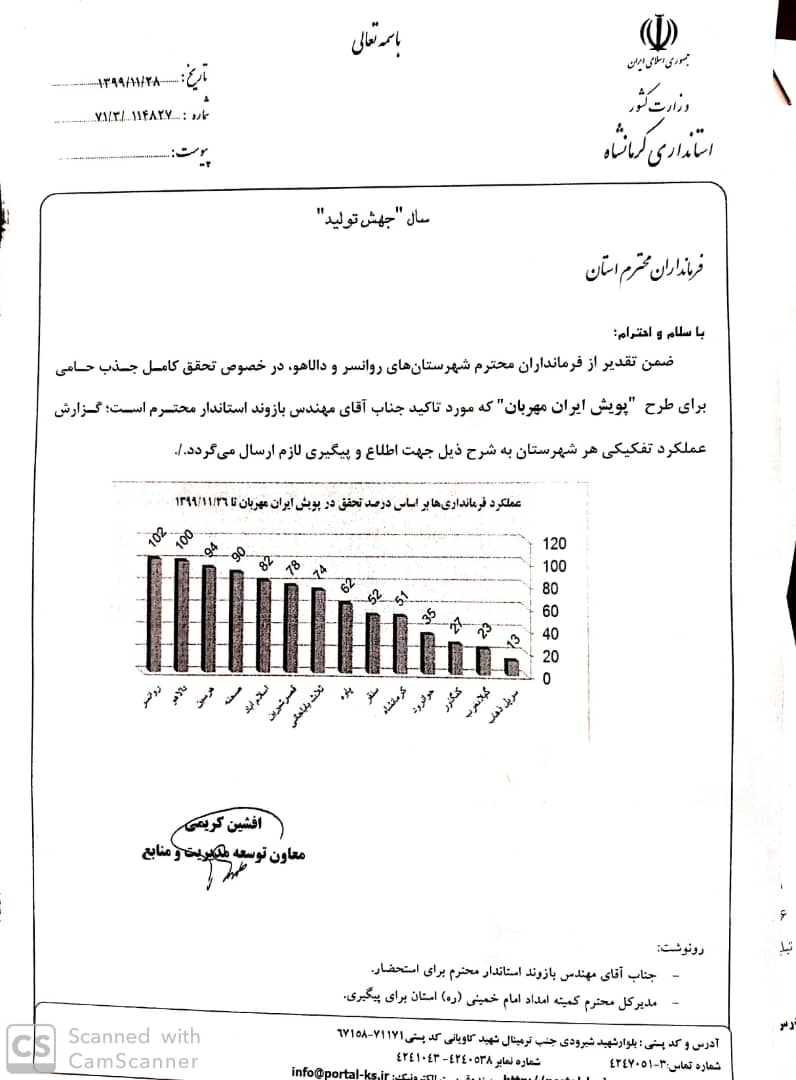 باسمه تعالی
جمهوری اسلامی ایران
وزارت کشور
استانداری کرمانشاه
تاریخ: ۱۳۹۹/۱۱/۲۸
شماره: ۷۱/۳/۱۱۴۸۲۷
پیوست:
سال "جهش تولید"
فرمانداران محترم استان
با سلام و احترام؛
ضمن تقدیر از فرمانداران محترم شهرستان‌های روانسر و دالاهو، در خصوص تحقق کامل جذب حامی
برای طرح "پویش ایران مهربان" که مورد تاکید جناب آقای مهندس بازوند استاندار محترم است؛ گزارش
عملکرد تفکیکی هر شهرستان به شرح ذیل جهت اطلاع و پیگیری لازم ارسال می‌گردد./.
عملکرد فرمانداری‌ها بر اساس درصد تحقق در پویش ایران مهربان تا ۱۳۹۹/۱۱/۲۶
102 100 94 90 82 78 74 62 52 51 35 27 23 13
120
100
80
60
40
20
0
روانسر دالاهو هرسین صحنه اسلام آباد قصرشیرین ثلاث باباجانی پاوه سنقر کرمانشاه جوانرود کنگاور گیلانغرب سرپل ذهاب
افشین کریمی
معاون توسعه مدیریت و منابع
رونوشت:
- جناب آقای مهندس بازوند استاندار محترم برای استحضار.
- مدیرکل محترم کمیته امداد امام خمینی (ره) استان برای پیگیری.
آدرس و کد پستی: بلوارشهید شیرودی جنب ترمینال شهید کاویانی کد پستی ۷۱۱۷۱-۶۷۱۵۸
شماره تماس: ۳-۴۲۴۷۰۵۱ شماره نمابر ۴۲۴۰۵۳۸-۴۲۴۱۰۴۳
info@portal-ks.ir
CS Scanned with
CamScanner